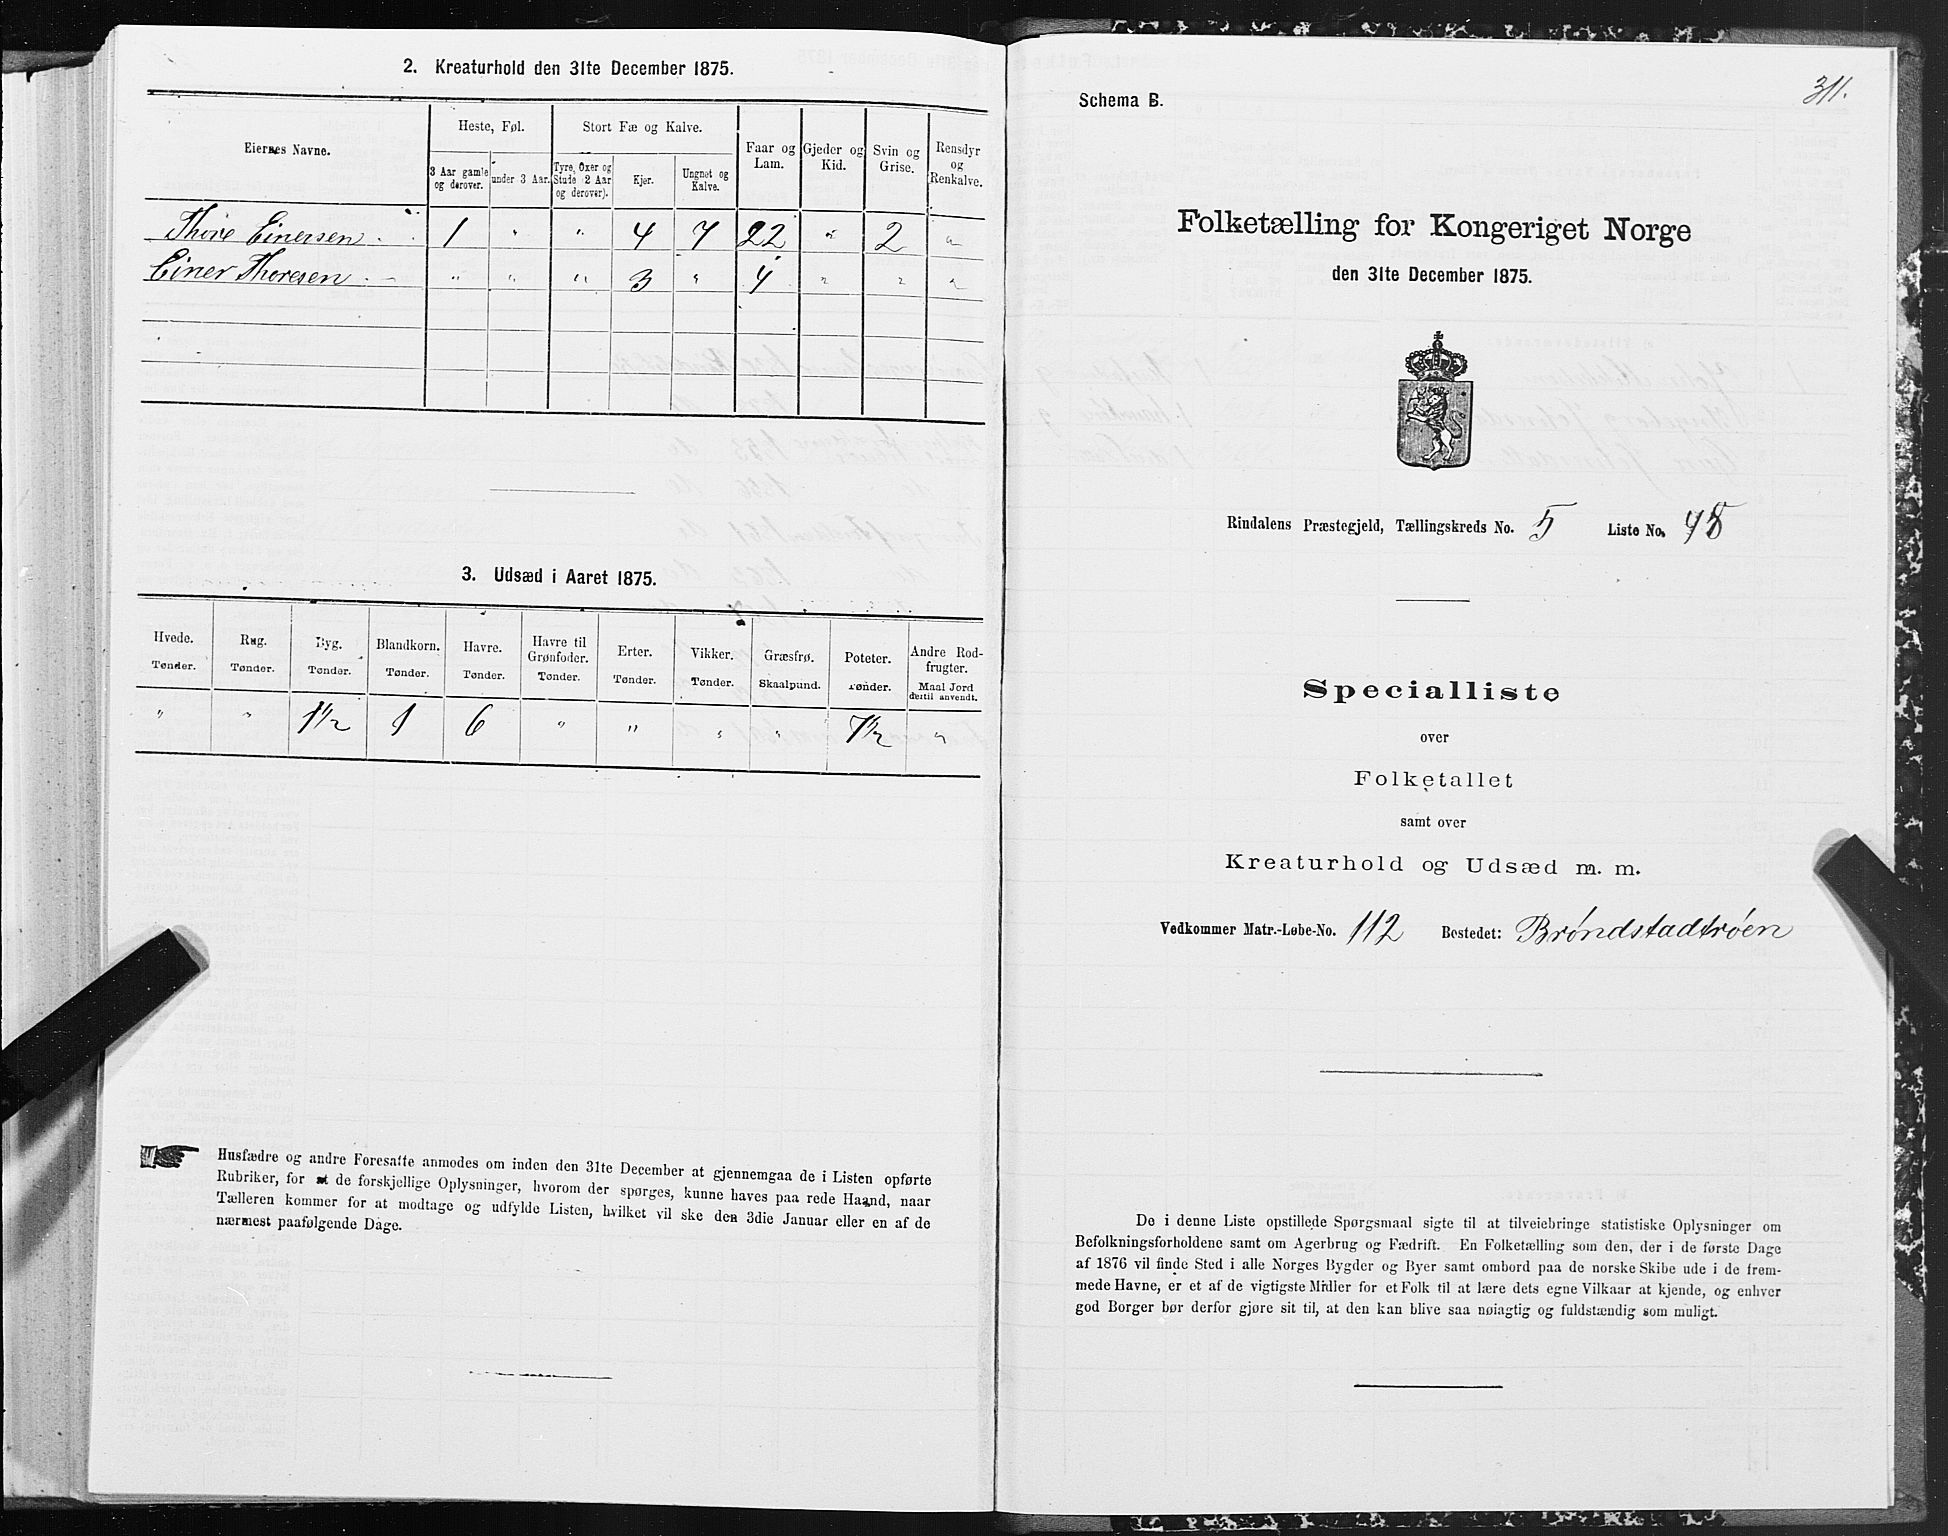 2. Kreaturhold den 31te December 1875.
Eiernes Navne.
Heste, Føl.
Stort Fæ og Kalve.
Faar og Lam.
Gjeder og Kid.
Svin og Grise.
Rensdyr og Renkalve.
3 Aar gamle og derover.
under 3 Aar.
Tyre, Oxer og Stude (2 Aar og derover).
Kjer.
Ungnøt og Kalve.
Thore Einersen 1 " " 4 7 22 " 2 "
Einer Thoresen " " " 3 " 4 " " "
3. Udsæd i Aaret 1875.
Hvede. Rug. Byg. Blandkorn. Havre. Havre til Grønfoder. Erter. Vikker. Græsfrø. Poteter. Andre Rodfrugter.
Tønder. Tønder. Tønder. Tønder. Tønder. Tønder. Tønder. Tønder. Skaalpund. Tønder. Maal Jord dertil anvendt.
" " 1½ 1 6 " " " " 7½ "
Husfædre og andre Foresatte anmodes om inden den 31te December at gjennemgaa de i Listen opførte
Rubriker, for at de forskjellige Oplysninger, hvorom der spørges, kunne haves paa rede Haand, naar
Tælleren kommer for at modtage og udfylde Listen, hvilket vil ske den 3die Januar eller en af de
nærmest paafølgende Dage.
311.
Schema B.
Folketælling for Kongeriget Norge
den 31te December 1875.
Rindalens Præstegjeld, Tællingskreds No. 5 Liste No. 48
Specialliste
over
Folketallet
samt over
Kreaturhold og Udsæd m. m.
Vedkommer Matr.-Løbe-No. 112 Bostedet: Brøndstadtrøen
De i denne Liste opstillede Spørgsmaal sigte til at tilveiebringe statistiske Oplysninger om
Befolkningsforholdene samt om Agerbrug og Fædrift. En Folketælling som den, der i de første Dage
af 1876 vil finde Sted i alle Norges Bygder og Byer samt ombord paa de norske Skibe ude i de frem-
mede Havne, er et af de vigtigste Midler for et Folk til at lære dets egne Vilkaar at kjende, og enhver
god Borger bør derfor gjøre sit til, at den kan blive saa nøiagtig og fuldstændig som muligt.